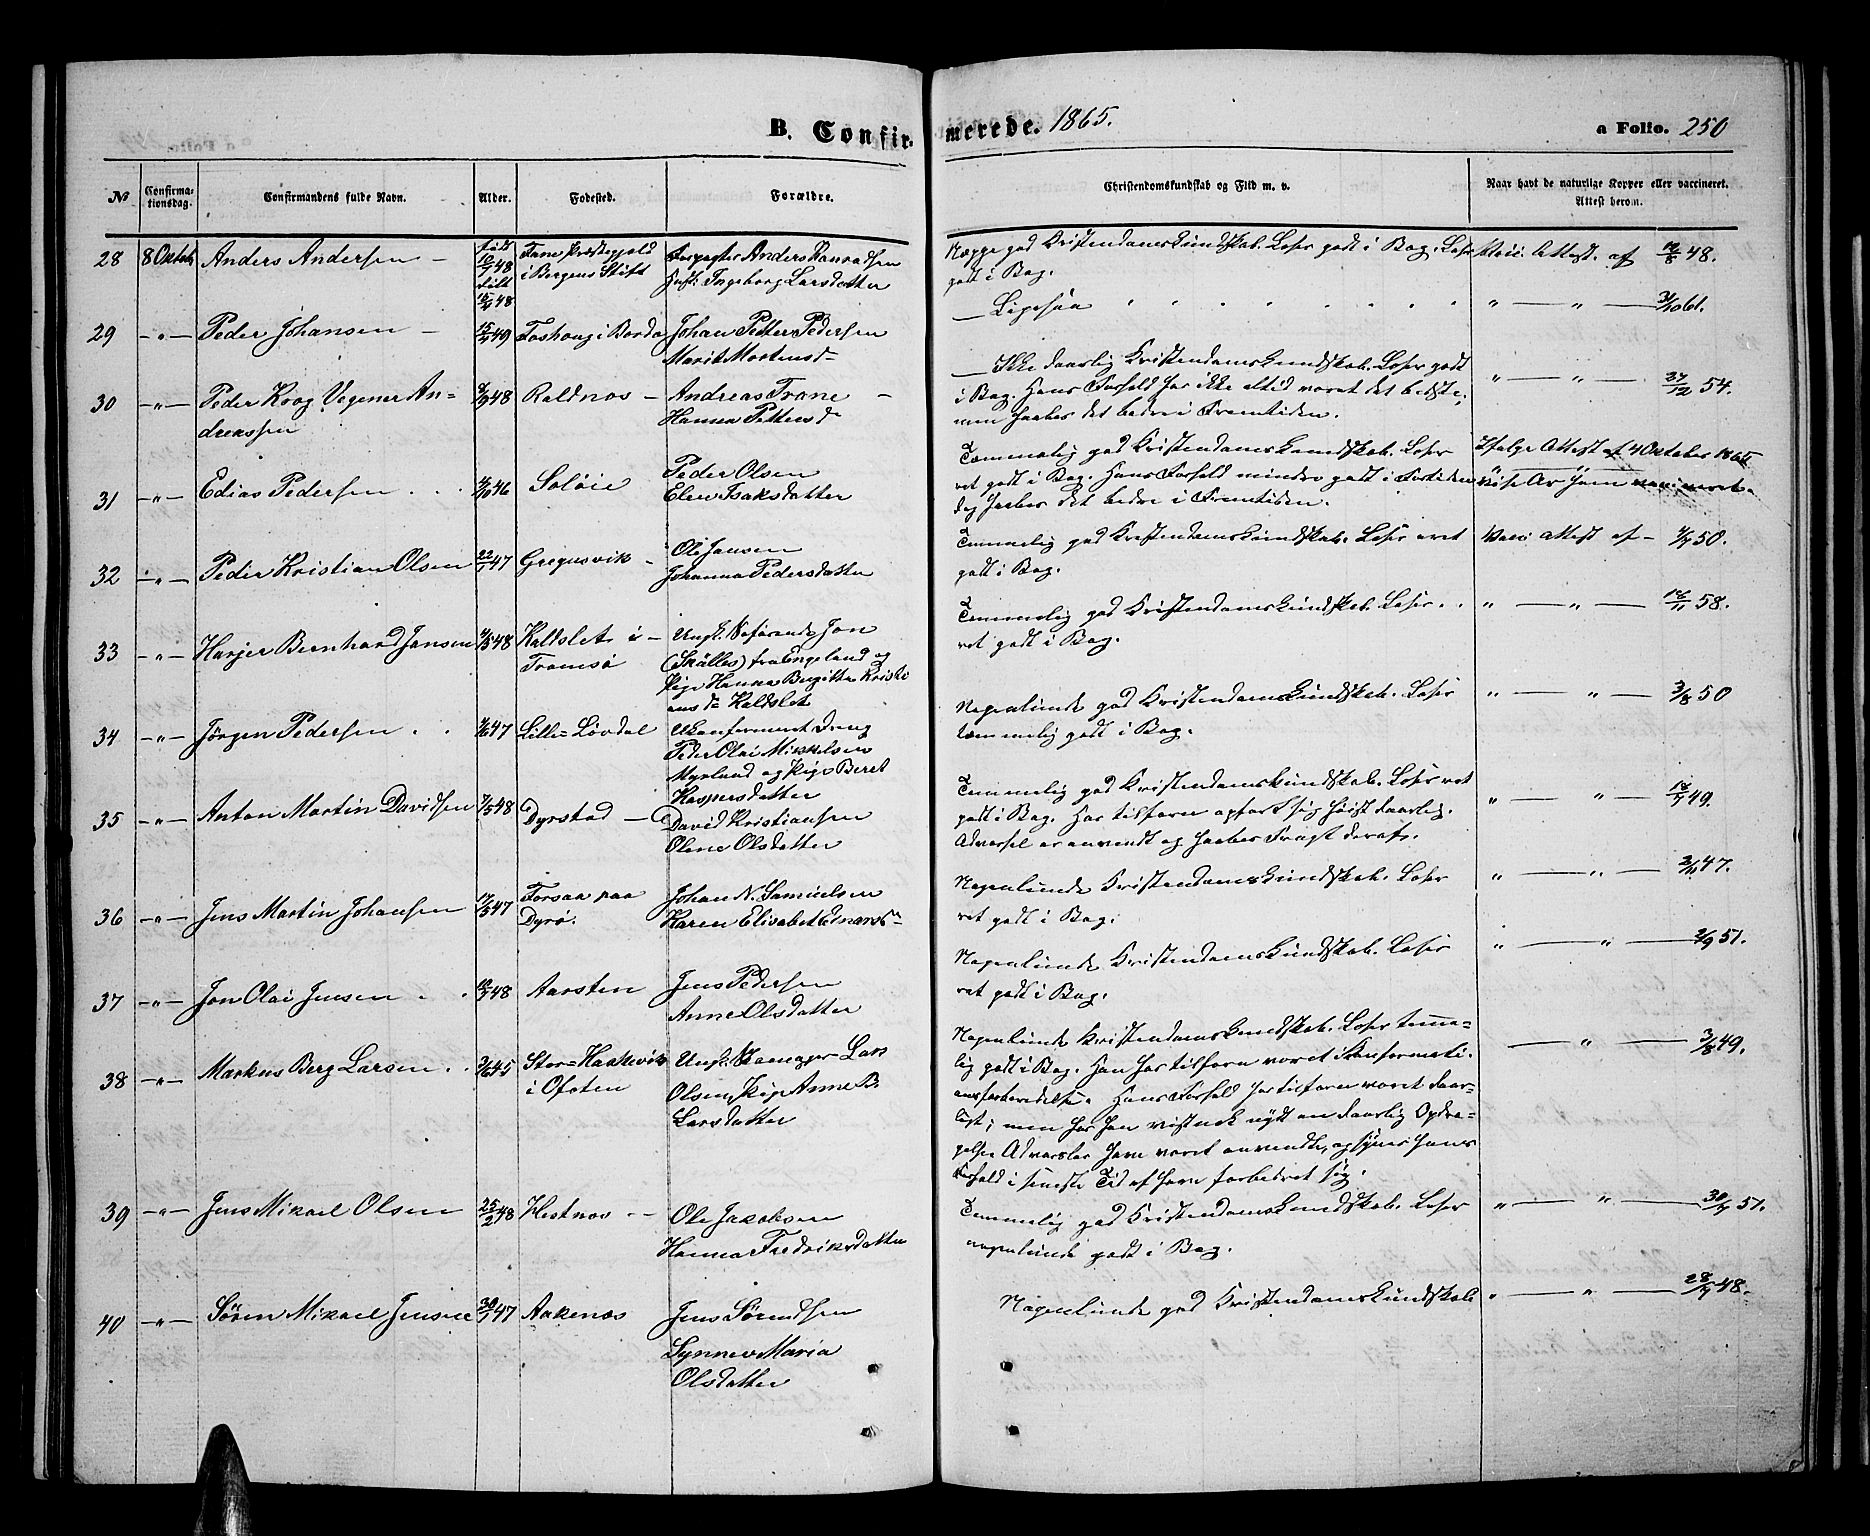 B. Confirmerede. 1865.
a Folio. 250
№ Confirmationsdag. Confirmandens fulde Navn. Alder. Fødested. Forældre. Christendomskundskab og Flid m. v. Naar havt de naturlige Kopper eller vaccineret. Attest herom.
28 8 Oktob Anders Andersen født 10/7 48 døbt 15/9 48 Fane Præstegjeld i Bergens Stift Forpagter Anders Hansen Hust. Ingeborg Larsdatter
Neppe god Kristendomskundskab. Læser godt i Bog. Læser godt i Bog. Attest af 12/8 48.
29 -"- Peder Johansen 15/5 49 Foshaug i Bardo Johan Petter Pedersen
Marit Mortensd
— Ligesaa " — " — 31/10 61.
30 -"- Peder Krog Vegener Andreassen 2/9 48 Raldnos Andreas Trane
Hanna Pettersd
— Ikke daarlig Kristendomskundskab. Læser godt
i Bog. Hans Forhold har ikke altid været det bedste;
men haabes det bedre i Fremtiden. " — " — 27/12 54.
31 -"- Edias Pedersen 10 46 Soløie Peder Olsen
Elen Isaksdatter
Temmelig god Kristendomskundskab. Læser
ret godt i Bog. Hans Forhold mindre godt i Fortiden
dog haabes det bedre i Fremtiden.
Ifølge Attest af 4 Oktober 1865
32 -"- Peder Kristian Olsen 22/1 47 Gregusvik Ole Jensen
Johanna Pedersdatter
Temmelig god Kristendomskundskab. Læser ret
godt i Bog. Vacc. Attest af 50.
33 -"- Harjer Bernhard Jansen 5 48 Kaldslet i
Tromsø Ungk. Søfarende Jon
(Skålles) fra Engeland og
Pige Hanna Birgitte Kristi
ansd Kaldslet
Temmelig god Kristendomskundskab. Læser
ret godt i Bog. " — " — 16/11 58.
34 -"- Jørgen Pedersen 6 47 Lille-Løvdal Ukonfirmeret Dreng
Peder Olai Mikkelsen
Myrland og Pige Beret
Kaspersdatter
Nogenlunde god Kristendomskundskab. Læser
temmelig godt i Bog. " — " — 3/8 50
35 -"- Anton Martin Davidsen 7/5 48 Dyrstad David Kristiansen
Olene Olsdatter
Temmelig god Kristendomskundskab. Læser ret
godt i Bog. Har tilforn opført sig høist daarlig.
Advarsel er anvendt og haabes Frugt deraf. " — " — 49.
36 -"- Jens Martin Johansen 17/5 47 Forsaa paa
Dyrø. Johan N. Samuelsen
Karen Elisabet Einarsd
Nogenlunde Kristendomskundskab. Læser
ret godt i Bog. " — " — 47.
37 -"- Jon Olai Jensen 48 Aarsten Jens Pedersen
Anne Olsdatter
Nogenlunde Kristendomskundskab. Læser
ret godt i Bog. " — " — 2/9 51.
38 -"- Markus Berg Larsen 6 45 Stor-Haakevik
i Ofoten Ungk. Lars
Olsen, Pige Anne B.
Larsdatter
Nogenlunde Kristendomskundskab. Læser temme-
lig godt i Bog. Han har tilforn været i Konfirmati-
onsforberedelse. Hans Forhold har tilforn været daar-
ligt; men har han vistnok nydt en daarlig Opdra-
gelse Advarsler have været anvendte, og synes hans
Forhold i seneste Tid at have forbedret sig.
— " — 3/8 49.
39 -"- Jens Mikael Olsen 25/2 48 Hestnes Ole Jakobsen
Hanna Fredriksdatter
Temmelig god Kristendomskundskab. Læser
nogenlunde godt i Bog. " — " — 51.
40 -"- Søren Mikael Jensen 47 Aakenes Jens Sørendsen
Synnev Maria
Olsdatter
Nogenlunde god Kristendomskundskab " — " — 48.